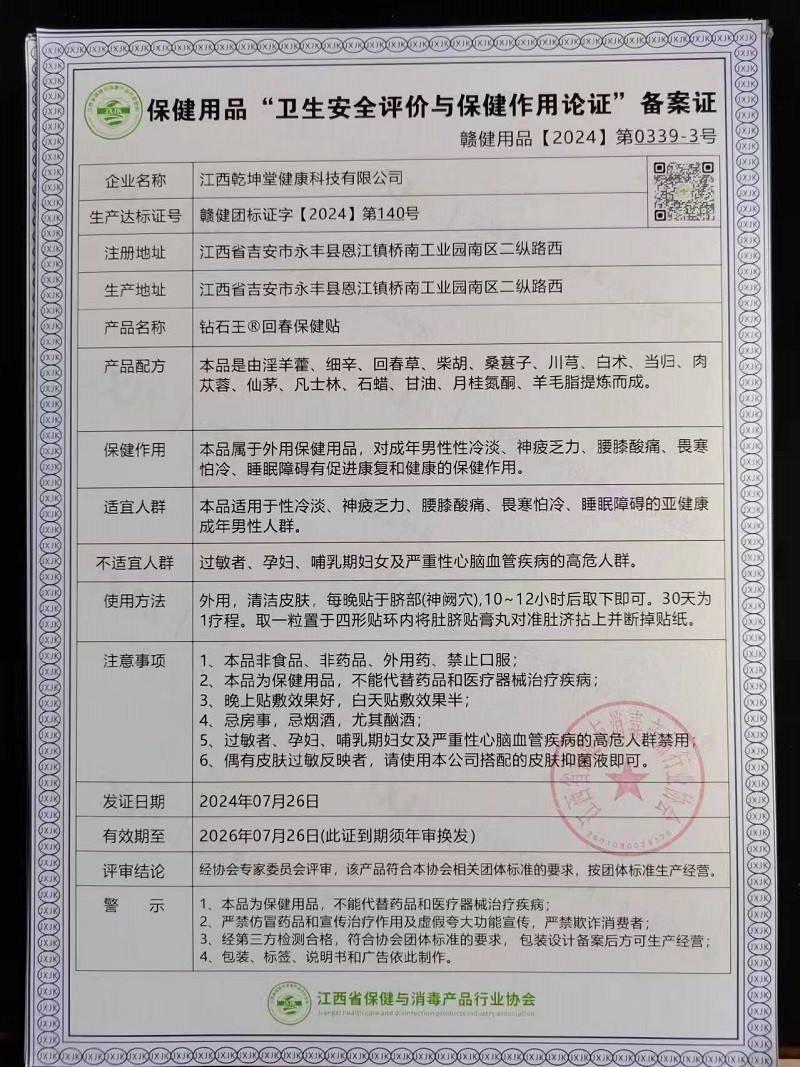 保健用品“卫生安全评价与保健作用论证”备案证
赣健用品【2024】第0339-3号
企业名称 江西乾坤堂健康科技有限公司
生产达标证号 赣健团标证字【2024】第140号
注册地址 江西省吉安市永丰县恩江镇桥南工业园南区二纵路西
生产地址 江西省吉安市永丰县恩江镇桥南工业园南区二纵路西
产品名称 钻石王®回春保健贴
产品配方 本品是由淫羊藿、细辛、回春草、柴胡、桑葚子、川芎、白术、当归、肉
苁蓉、仙茅、凡士林、石蜡、甘油、月桂氮酮、羊毛脂提炼而成。
保健作用 本品属于外用保健用品，对成年男性性冷淡、神疲乏力、腰膝酸痛、畏寒
怕冷、睡眠障碍有促进康复和健康的保健作用。
适宜人群 本品适用于性冷淡、神疲乏力、腰膝酸痛、畏寒怕冷、睡眠障碍的亚健康
成年男性人群。
不适宜人群 过敏者、孕妇、哺乳期妇女及严重性心脑血管疾病的高危人群。
使用方法 外用，清洁皮肤，每晚贴于脐部(神阙穴),10~12小时后取下即可。30天为
1疗程。取一粒置于四形贴环内将肚脐贴膏丸对准肚济拈上并断掉贴纸。
注意事项 1、本品非食品、非药品、外用药、禁止口服；
2、本品为保健用品，不能代替药品和医疗器械治疗疾病；
3、晚上贴敷效果好，白天贴敷效果半；
4、忌房事，忌烟酒，尤其酗酒；
5、过敏者、孕妇、哺乳期妇女及严重性心脑血管疾病的高危人群禁用；
6、偶有皮肤过敏反映者，请使用本公司搭配的皮肤抑菌液即可。
发证日期 2024年07月26日
有效期至 2026年07月26日(此证到期须年审换发）
评审结论 经协会专家委员会评审，该产品符合本协会相关团体标准的要求，按团体标准生产经营。
警示 1、本品为保健用品，不能代替药品和医疗器械治疗疾病；
2、严禁仿冒药品和宣传治疗作用及虚假夸大功能宣传，严禁欺诈消费者；
3、经第三方检测合格，符合协会团体标准的要求，包装设计备案后方可生产经营；
4、包装、标签、说明书和广告依此制作。
江西省保健与消毒产品行业协会
jiangxi health care and disinfection products industry association